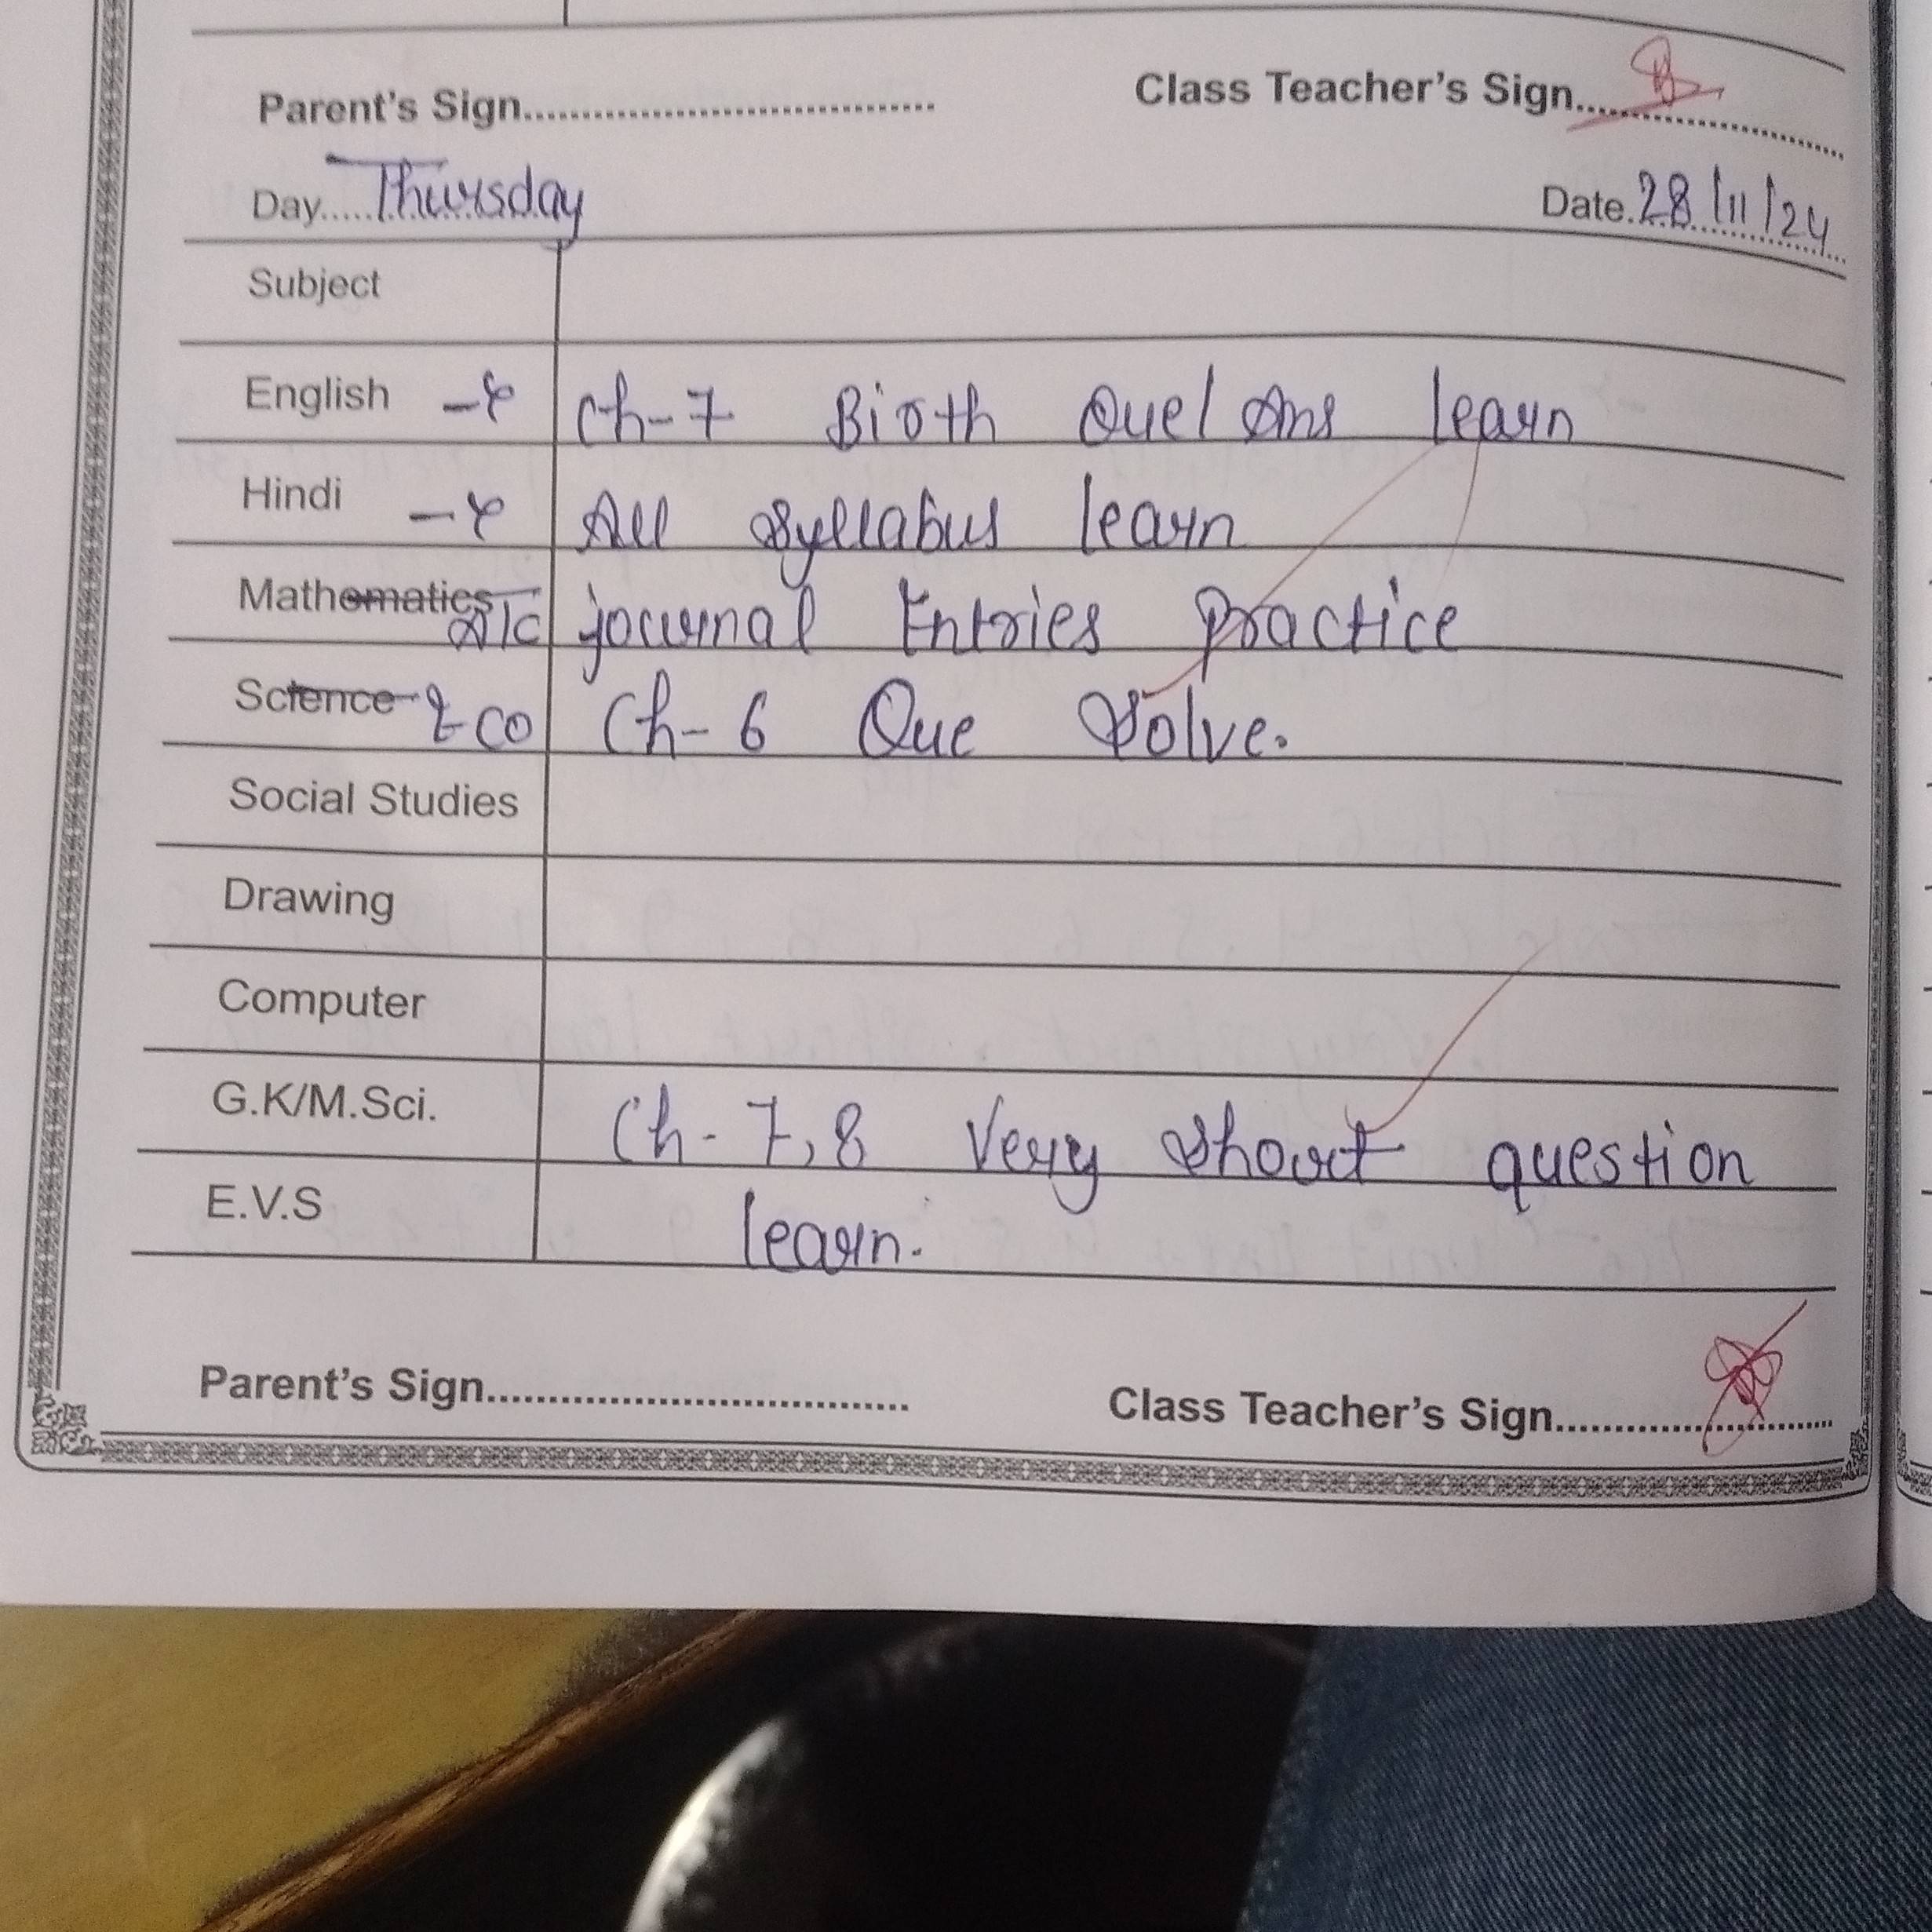 Parent's Sign.................................... Class Teacher's Sign...........................
Day.....Thursday Date.28/11/24
Subject
English - Ch-7 Birth Que/Ans learn
Hindi - All Syllabus learn
Mathematics A/c journal Entries Practice
Science Eco Ch-6 Que Solve.
Social Studies
Drawing
Computer
G.K/M.Sci. Ch-7,8 Very Short question
E.V.S learn.
Parent's Sign.................................... Class Teacher's Sign...........................